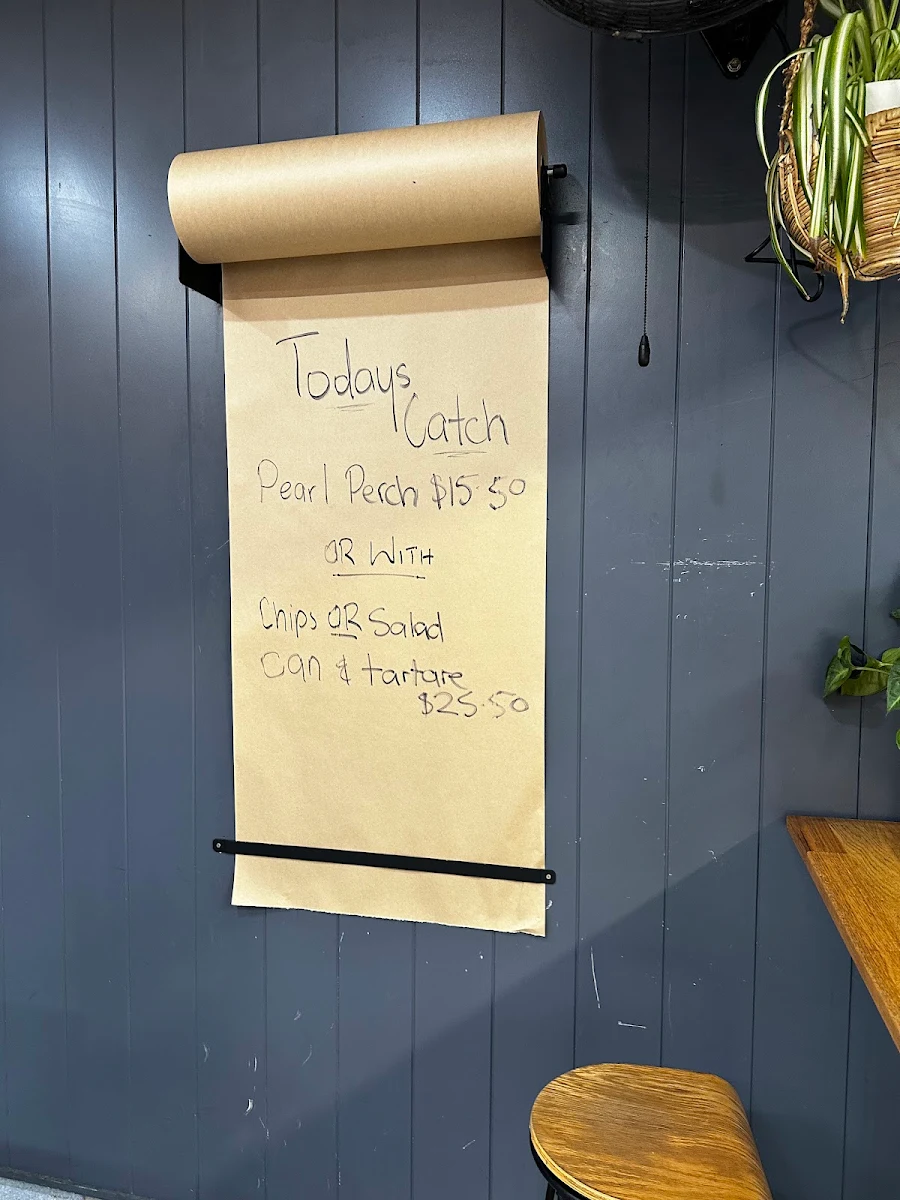 Todays
Catch
Pearl Perch $15.50
OR WITH
Chips OR Salad
Can & tartare
$25.50